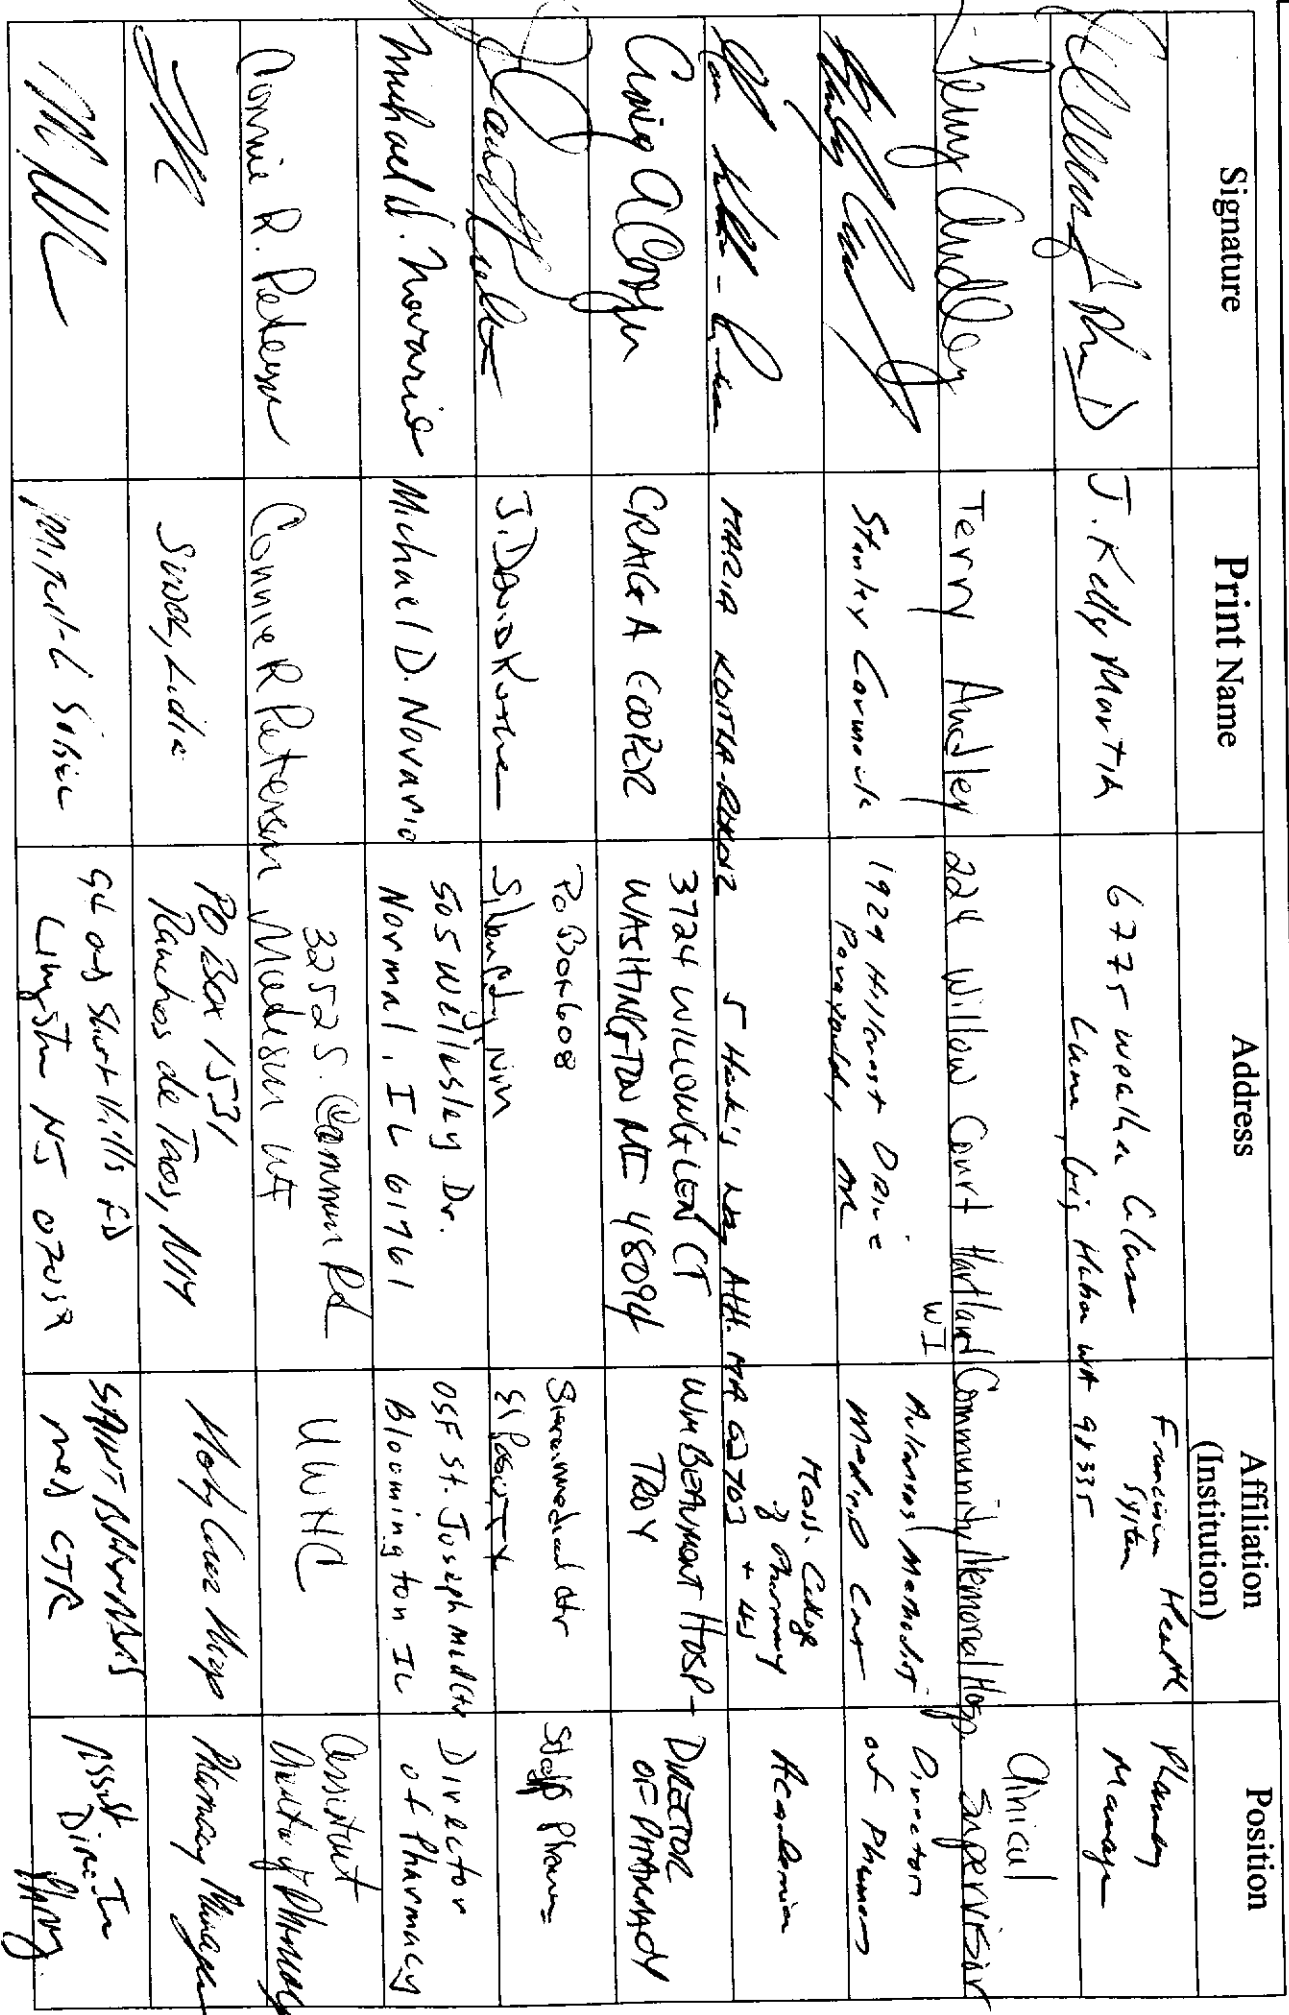 Signature Print Name Address Affiliation (Institution) Position
J. Kelly Martin 6775 Weather Glass Lane, Gig Harbor WA 98335 Franciscan Health System Pharmacy Manager
Terry Audley Terry Audley 224 Willow Court Hartland WI Community Memorial Hosp. Clinical Supervisor
Stanley 1929 Hillcrest Drive Arkansas Methodist Medical Director of
MARIA 5 MA 02703 Mass. College of Pharmacy + HS Academia
Craig A Cooper CRAIG A COOPER 3724 WILLOWGLEN CT WASHINGTON MI 48094 WM BEAUMONT HOSP- TROY DIRECTOR OF PHARMACY
J. DAVID PO Box 608 Silver City NM Staff
Michael D. Novario Michael D. Novario 505 Wellesley Dr. Normal, IL 61761 OSF St. Joseph Med Ctr Bloomington IL Director of Pharmacy
Connie R. Peterson Connie R Peterson 3252 S. Common Rd Madison WI UWHC Assistant Director of Pharmacy
PO Box 1531 Ranchos de Taos, NM Holy Cross Hosp Pharmacy Manager
94 Old Short Hills RD Livingston NJ SAINT BARNABAS MED CTR Assist Director